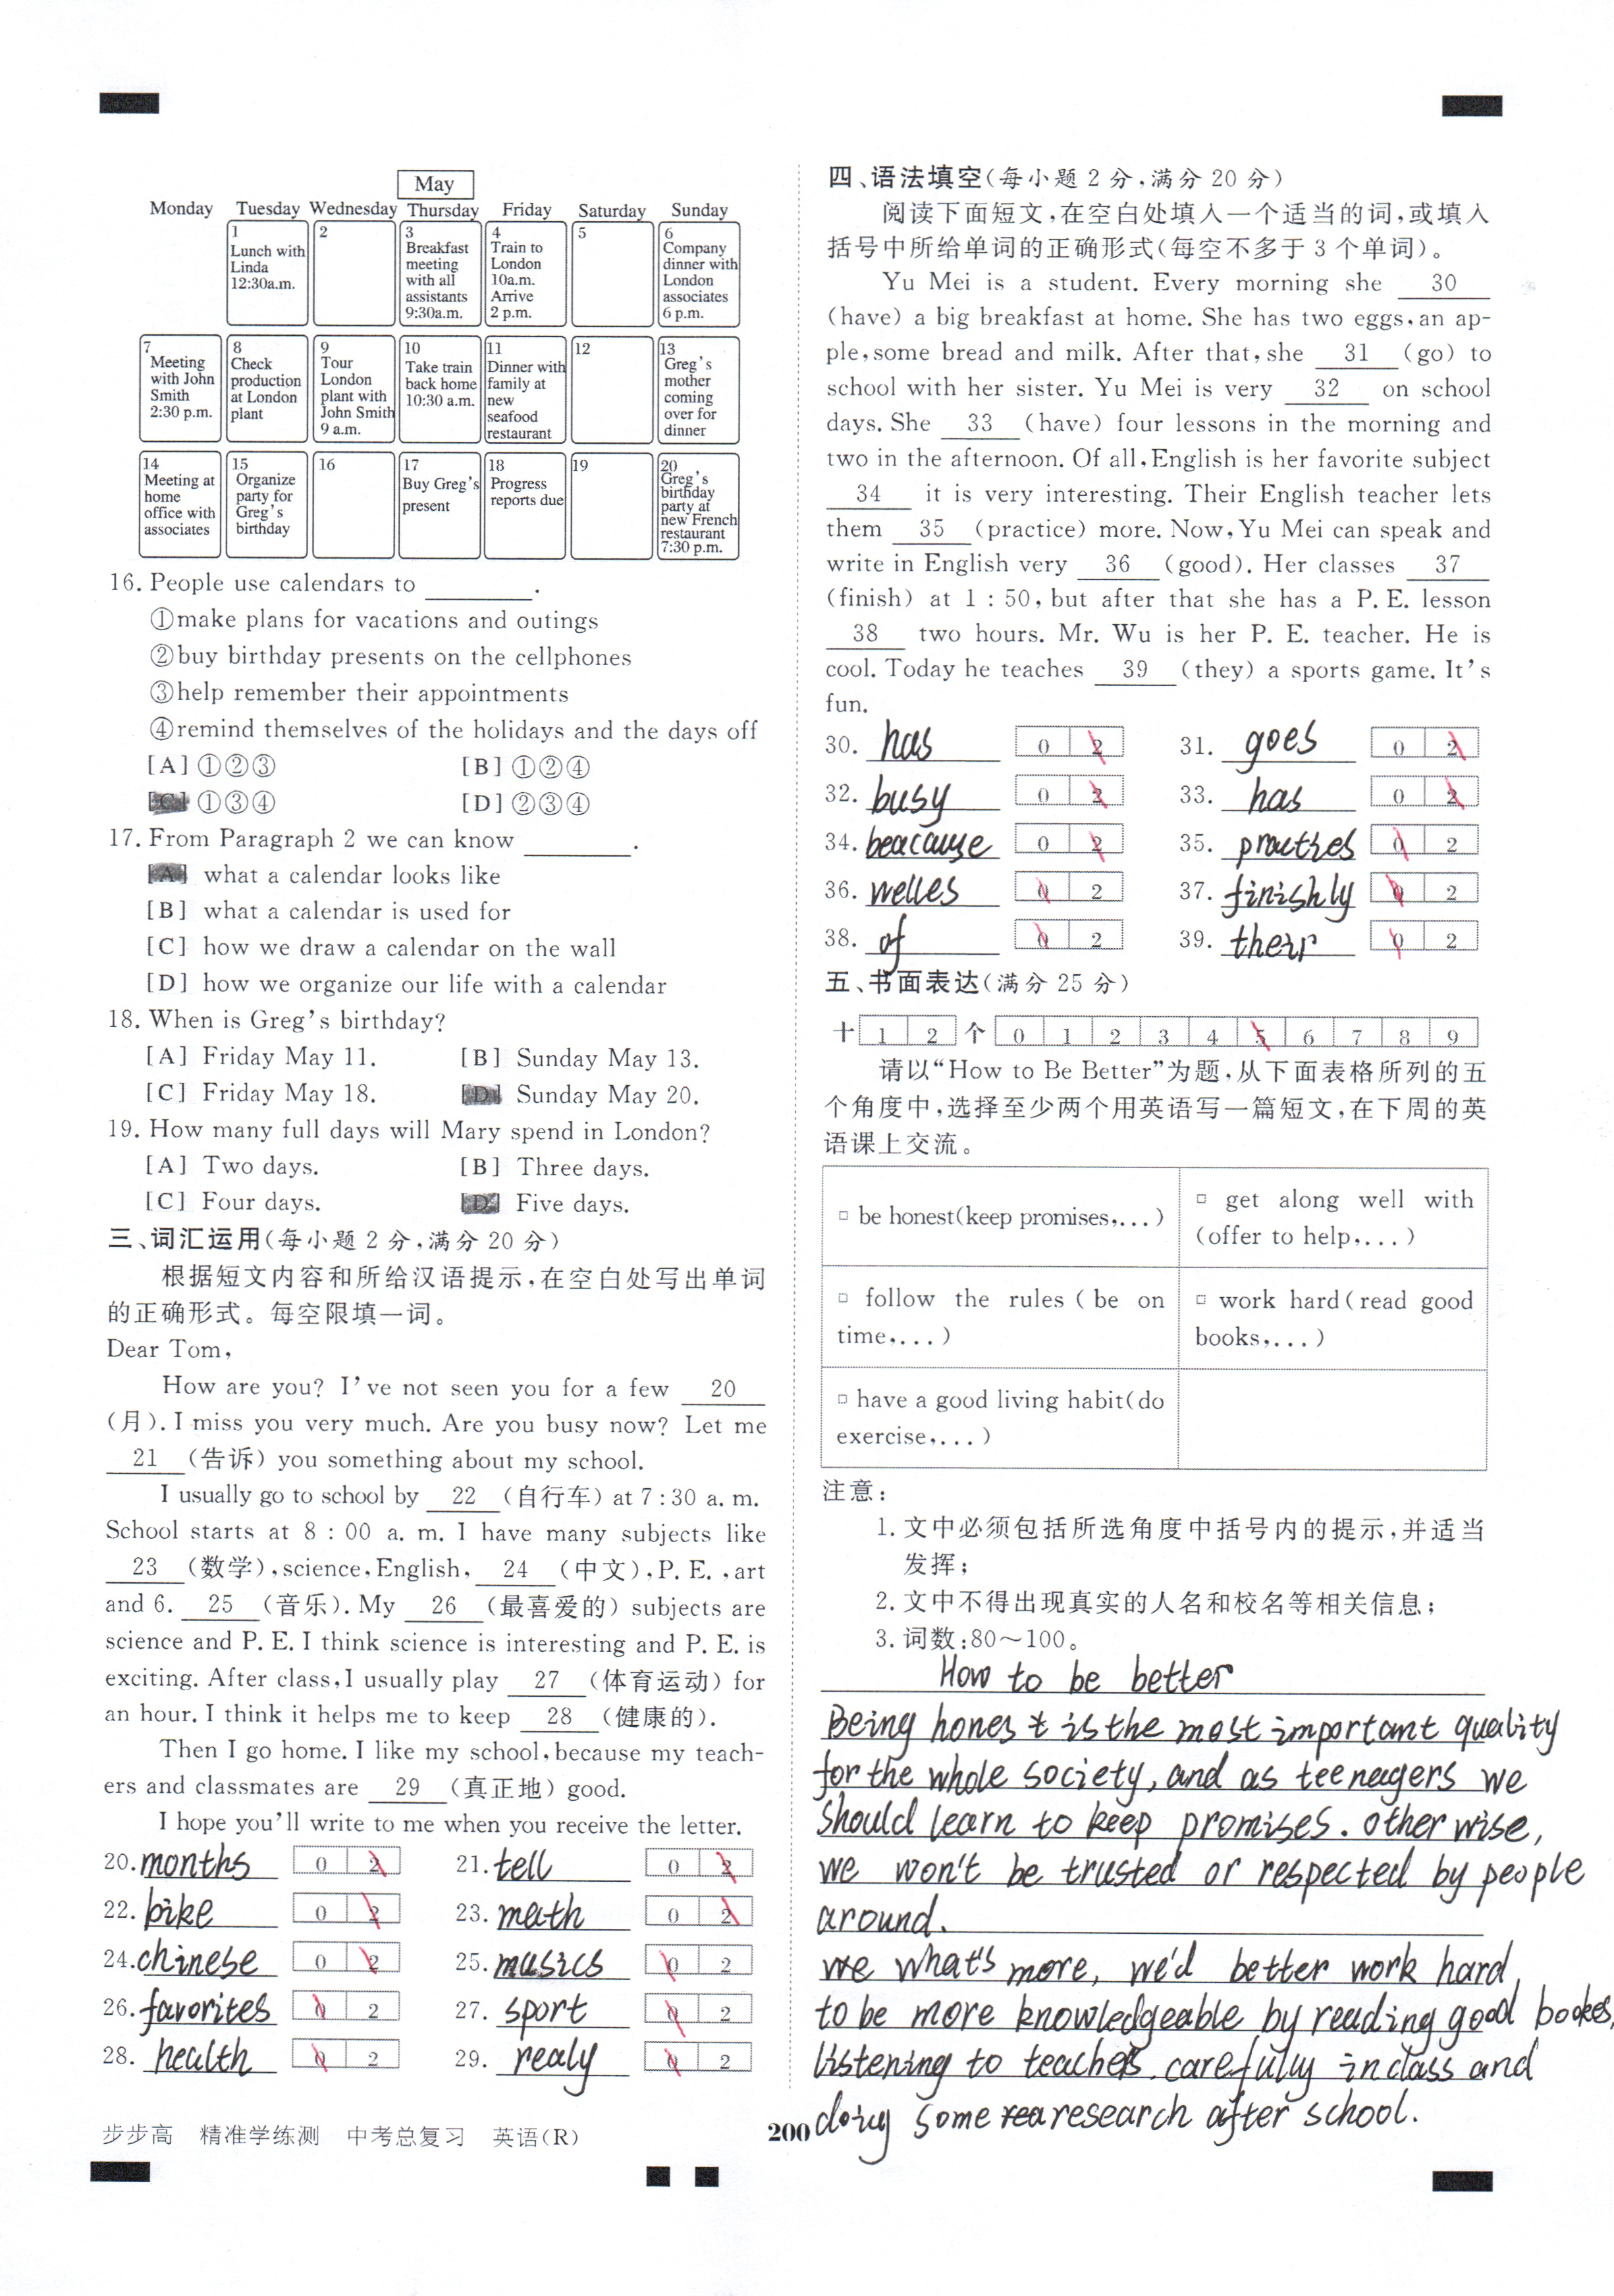 May
Monday Tuesday Wednesday Thursday Friday Saturday Sunday
1
Lunch with
Linda
12:30a.m.
2
3
Breakfast
meeting
with all
assistants
9:30a.m.
4
Train to
London
10a.m.
Arrive
2 p.m.
5
6
Company
dinner with
London
associates
6 p.m.
7
Meeting
with John
Smith
2:30 p.m.
8
Check
production
at London
plant
9
Tour
London
plant with
John Smith
9 a.m.
10
Take train
back home
10:30 a.m.
11
Dinner with
family at
new
seafood
restaurant
12
13
Greg's
mother
coming
over for
dinner
14
Meeting at
home
office with
associates
15
Organize
party for
Greg's
birthday
16
17
Buy Greg's
present
18
Progress
reports due
19
20
Greg's
birthday
party at
new French
restaurant
7:30 p.m.
16. People use calendars to ________.
①make plans for vacations and outings
②buy birthday presents on the cellphones
③help remember their appointments
④remind themselves of the holidays and the days off
[A] ①②③ [B] ①②④
[C] ①③④ [D] ②③④
17. From Paragraph 2 we can know ________.
[A] what a calendar looks like
[B] what a calendar is used for
[C] how we draw a calendar on the wall
[D] how we organize our life with a calendar
18. When is Greg's birthday?
[A] Friday May 11. [B] Sunday May 13.
[C] Friday May 18. [D] Sunday May 20.
19. How many full days will Mary spend in London?
[A] Two days. [B] Three days.
[C] Four days. [D] Five days.
三、词汇运用(每小题 2 分,满分 20 分)
根据短文内容和所给汉语提示,在空白处写出单词
的正确形式。每空限填一词。
Dear Tom,
How are you? I've not seen you for a few 20
(月). I miss you very much. Are you busy now? Let me
21 (告诉) you something about my school.
I usually go to school by 22 (自行车) at 7:30 a. m.
School starts at 8 : 00 a. m. I have many subjects like
23 (数学), science, English, 24 (中文), P. E. , art
and 6. 25 (音乐). My 26 (最喜爱的) subjects are
science and P. E. I think science is interesting and P. E. is
exciting. After class, I usually play 27 (体育运动) for
an hour. I think it helps me to keep 28 (健康的).
Then I go home. I like my school, because my teach-
ers and classmates are 29 (真正地) good.
I hope you'll write to me when you receive the letter.
20. months 0 2 21. tell 0 2
22. bike 0 2 23. math 0 2
24. chinese 0 2 25. musics 0 2
26. favorites 0 2 27. sport 0 2
28. health 0 2 29. realy 0 2
步步高 精准学练测 中考总复习 英语(R)
200
四、语法填空(每小题 2 分,满分 20 分)
阅读下面短文,在空白处填入一个适当的词,或填入
括号中所给单词的正确形式(每空不多于 3 个单词)。
Yu Mei is a student. Every morning she 30
(have) a big breakfast at home. She has two eggs, an ap-
ple, some bread and milk. After that, she 31 (go) to
school with her sister. Yu Mei is very 32 on school
days. She 33 (have) four lessons in the morning and
two in the afternoon. Of all, English is her favorite subject
34 it is very interesting. Their English teacher lets
them 35 (practice) more. Now, Yu Mei can speak and
write in English very 36 (good). Her classes 37
(finish) at 1 : 50, but after that she has a P. E. lesson
38 two hours. Mr. Wu is her P. E. teacher. He is
cool. Today he teaches 39 (they) a sports game. It's
fun.
30. has 0 2 31. goes 0 2
32. busy 0 2 33. has 0 2
34. beacause 0 2 35. practies 0 2
36. welles 0 2 37. finishly 0 2
38. of 0 2 39. their 0 2
五、书面表达(满分 25 分)
十 1 2 个 0 1 2 3 4 5 6 7 8 9
请以“How to Be Better”为题,从下面表格所列的五
个角度中,选择至少两个用英语写一篇短文,在下周的英
语课上交流。
□ be honest(keep promises,...)
□ get along well with
(offer to help,...)
□ follow the rules (be on
time,...)
□ work hard(read good
books,...)
□ have a good living habit(do
exercise,...)
注意:
1. 文中必须包括所选角度中括号内的提示,并适当
发挥;
2. 文中不得出现真实的人名和校名等相关信息;
3. 词数:80～100。
How to be better
Being honest is the most important quality
for the whole society, and as teenagers we
should learn to keep promises. other wise,
we won't be trusted or respected by people
around.
we what's more, we'd better work hard
to be more knowledgeable by reading good bookes,
listening to teachers carefully in class and
doing some rea research after school.